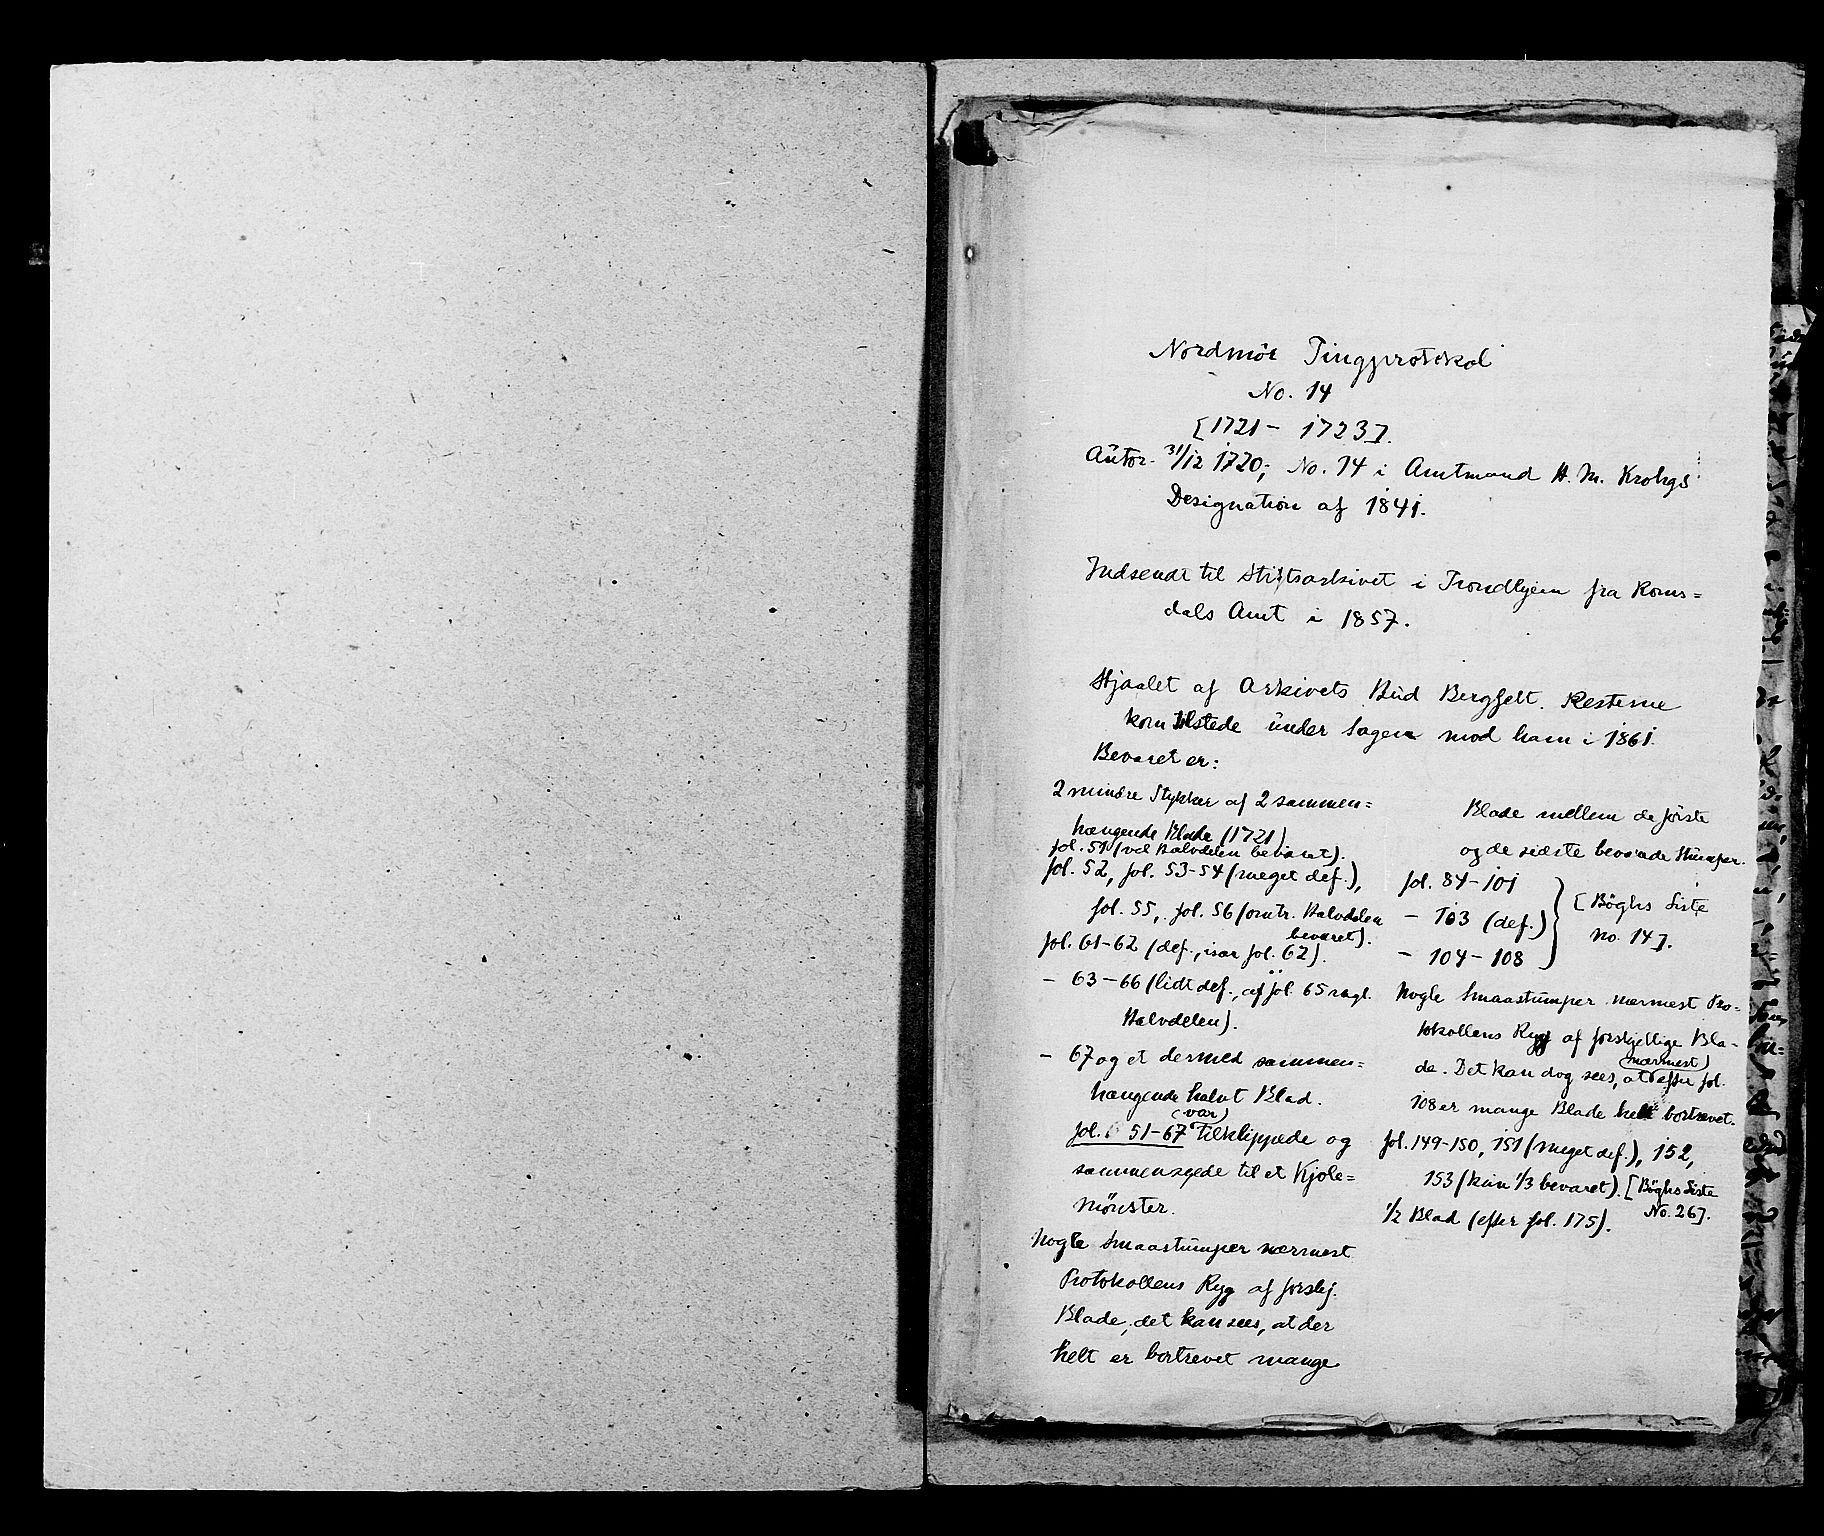 Nordmör Tingprotokol
No. 14
[1721 - 1723].
Autor. 31/12 1720; No. 14 i Amtmand H. M. Krohgs
Designation af 1841.
Indsendt til Stiftsarkivet i Trondhjem fra Roms=
dals Amt i 1857.
Stjaalet af Arkivets Bud Bergfelt. Resterne
kom tilstede under Sagen mod ham i 1861.
Bevaret er:
2 mindre Stykker af 2 sammen=
hængende Blade (1721)
fol. 51 (vel Halvdelen bevaret).
fol. 52, fol. 53-54 (meget def.),
fol. 55, fol. 56 (omtr. Halvdelen
bevaret).
fol. 61-62 (def., især fol. 62).
- 63-66 (lidt def., af fol. 65 mgl.
Halvdelen).
- 67 og et dermed sammen=
hængende halvt Blad.
(var)
fol. 51-67 Tilklippede og
sammensyede til et Kjole=
mönster.
Nogle Smaastumper nærmest
Protokollens Ryg af forskj.
Blade; det kan sees, at der
helt er bortrevet mange
Blade mellem de første
og de sidste bevarede Stumper.
fol. 84-101
- 103 (def.)
- 104-108
[Bøghs Liste
No. 14].
Nogle Smaastumper nærmest Pro-
tokollens Ryg af forskjellige Bla-
de. Det kan dog sees, at (nærmest) efter fol.
108 er mange Blade helt bortrevet.
fol. 149-150, 151 (meget def.), 152,
153 (kun 1/3 bevaret). [Bøghs Liste
No. 26].
1/2 Blad (efter fol. 175).